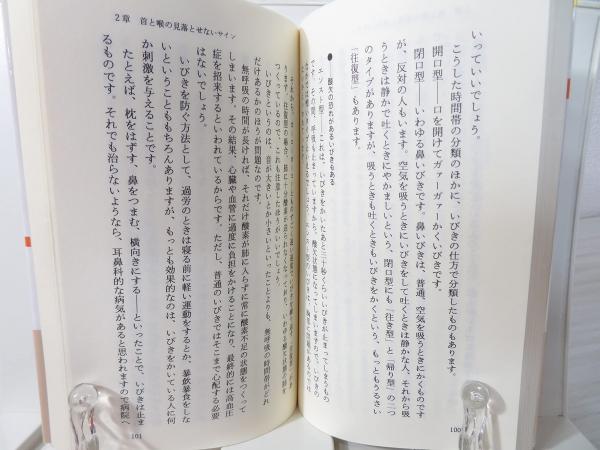 いっていいでしょう。
こうした時間帯の分類のほかに、いびきの仕方で分類したものもあります。
開口型――口を開けてガァーガァーかくいびきです。
閉口型――いわゆる鼻いびきです。鼻いびきは、普通、空気を吸うときにかくものです
が、反対の人もいます。空気を吸うときにいびきをして吐くときは静かな人、それから吸
うときは静かで吐くときにやかましいという、閉口型にも「往き型」と「帰り型」の二つ
のタイプがありますが、吸うときも吐くときもいびきをかくという、もっともうるさい
「往復型」もあります。
●――酸欠の恐れがあるいびきもある
これは、いびきをかいたあと三十秒くらいいびきが止まってしまうもの
です。その間、呼吸も止まっていますから、酸欠状態になってしまいますので、いびきの
100
2章 首と喉の見落とせないサイン
ります。往復型の場合、肺に十分酸素が送られなくなっており、いわゆる酸欠状態を
つくっているので、これも注意したほうがいいでしょう。
いびきというのは、音が大きいとか小さいといったことよりも、無呼吸の時間帯がどれ
だけあるかのほうが問題なのです。
無呼吸の時間が長ければ、それだけ酸素が肺に入らずに常に酸素不足の状態をつくって
しまいます。その結果、心臓や血管に過度に負担をかけることになり、最終的には高血圧
症を招来するといわれているからです。ただし、普通のいびきではそこまで心配する必要
はないでしょう。
いびきを防ぐ方法として、過労のときは寝る前に軽い運動をするとか、暴飲暴食をしな
いということももちろんありますが、もっとも効果的なのは、いびきをかいている人に何
か刺激を与えることです。
たとえば、枕をはずす、鼻をつまむ、横向きにする――といったことで、いびきは止ま
るものです。それでも治らないようなら、耳鼻科的な病気があると思われますので病院へ
101